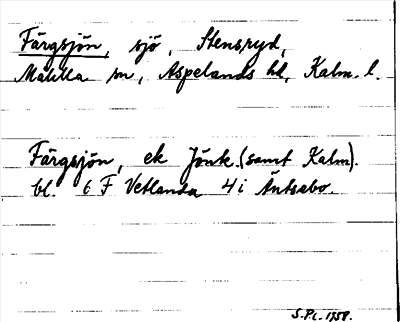 Färgsjön, sjö, Stensryd,
Målilla sn, Aspelands hd, Kalm. l.
Färgsjön, ek Jönk. (samt Kalm).
bl. 6 F Vetlanda 4 i Äntsebo.
S.P.L. 1958.